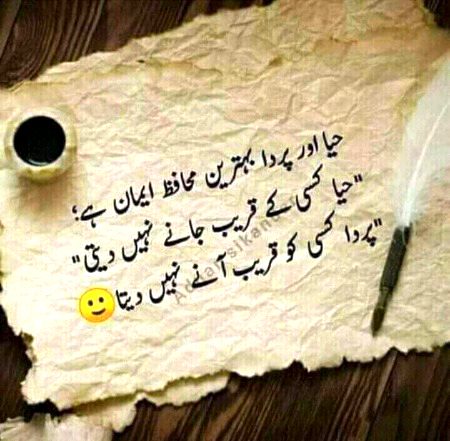 حیا اور پردا بہترین محافظ ایمان ہے؛
"حیا کسی کے قریب جانے نہیں دیتی"
"پردا کسی کو قریب آنے نہیں دیتا🙂